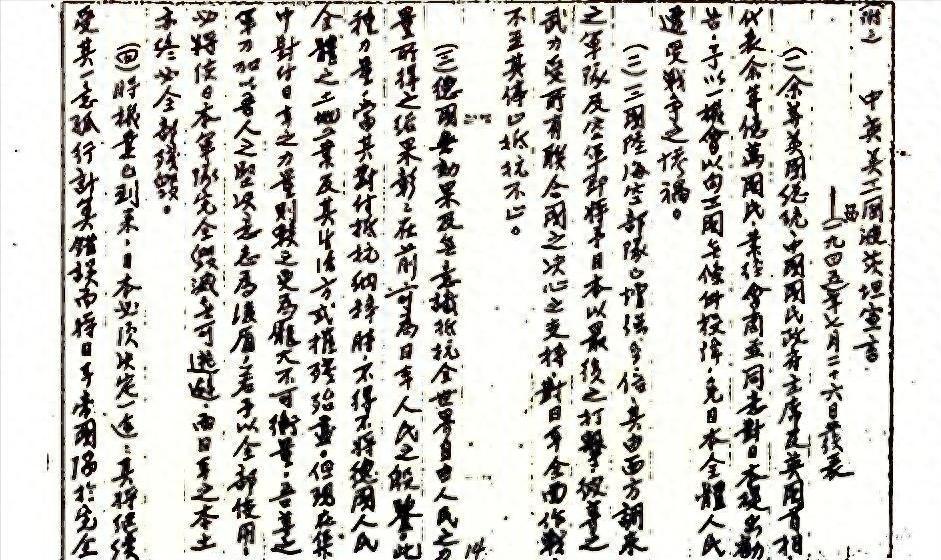 附二 中英美三国波茨坦宣言
一九四五年七月二十六日發表
(一)余等美國總統、中國國民政府主席及英國首相
代表余等億萬國民業經會商並同意對日本現
告、予以一機會以向三國無條件投降、免日本全體人民
遭受戰爭之慘禍。
(二)三國陸海空部隊已增强多倍、其由西方調來
之軍隊及空軍即將予日本以最後之打擊、彼等之
武力受所有聯合國之决心之支持對日本全面作戰
不至其停止抵抗不止。
(三)德國無動果及無意識抵抗全世界自由人民之力
量所得之结果彰彰在前可為日本人民之殷鑒。此
種力量、當其對付抵抗納粹時、不得不將德國人民
全體之土地業及其生活方式摧殘殆盡。但现在集
中對付日本之力量則較之更為龐大不可衡量。吾等之
軍力加以吾人之堅决意志為後盾、若予以全部使用、
必將使日本軍隊完全毁滅無可逃避、而日本之本土
亦終必全部殘毀。
(四)時機業已到来、日本必須决定一途、其將继續
受其一意孤行計算錯誤而將日本帝國陷於完全
14.